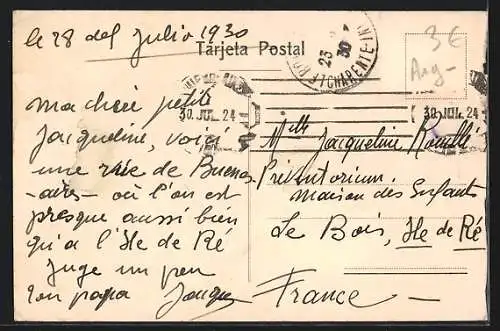 le 28 del Julio 1930
Tarjeta Postal
3€
Arg-
23
30
CHARENTE
30.JUL.24
30 JUL 24
ma chère petite
Jacqueline, voici
une rue de Buenos
-aires- où l'on est
presque aussi bien
qu'a l'Ile de Ré
Juge un peu
ton papa Jacques
Mlle Jacqueline
Preventorium
maison des Enfants
Le Bois, Ile de Ré
France -